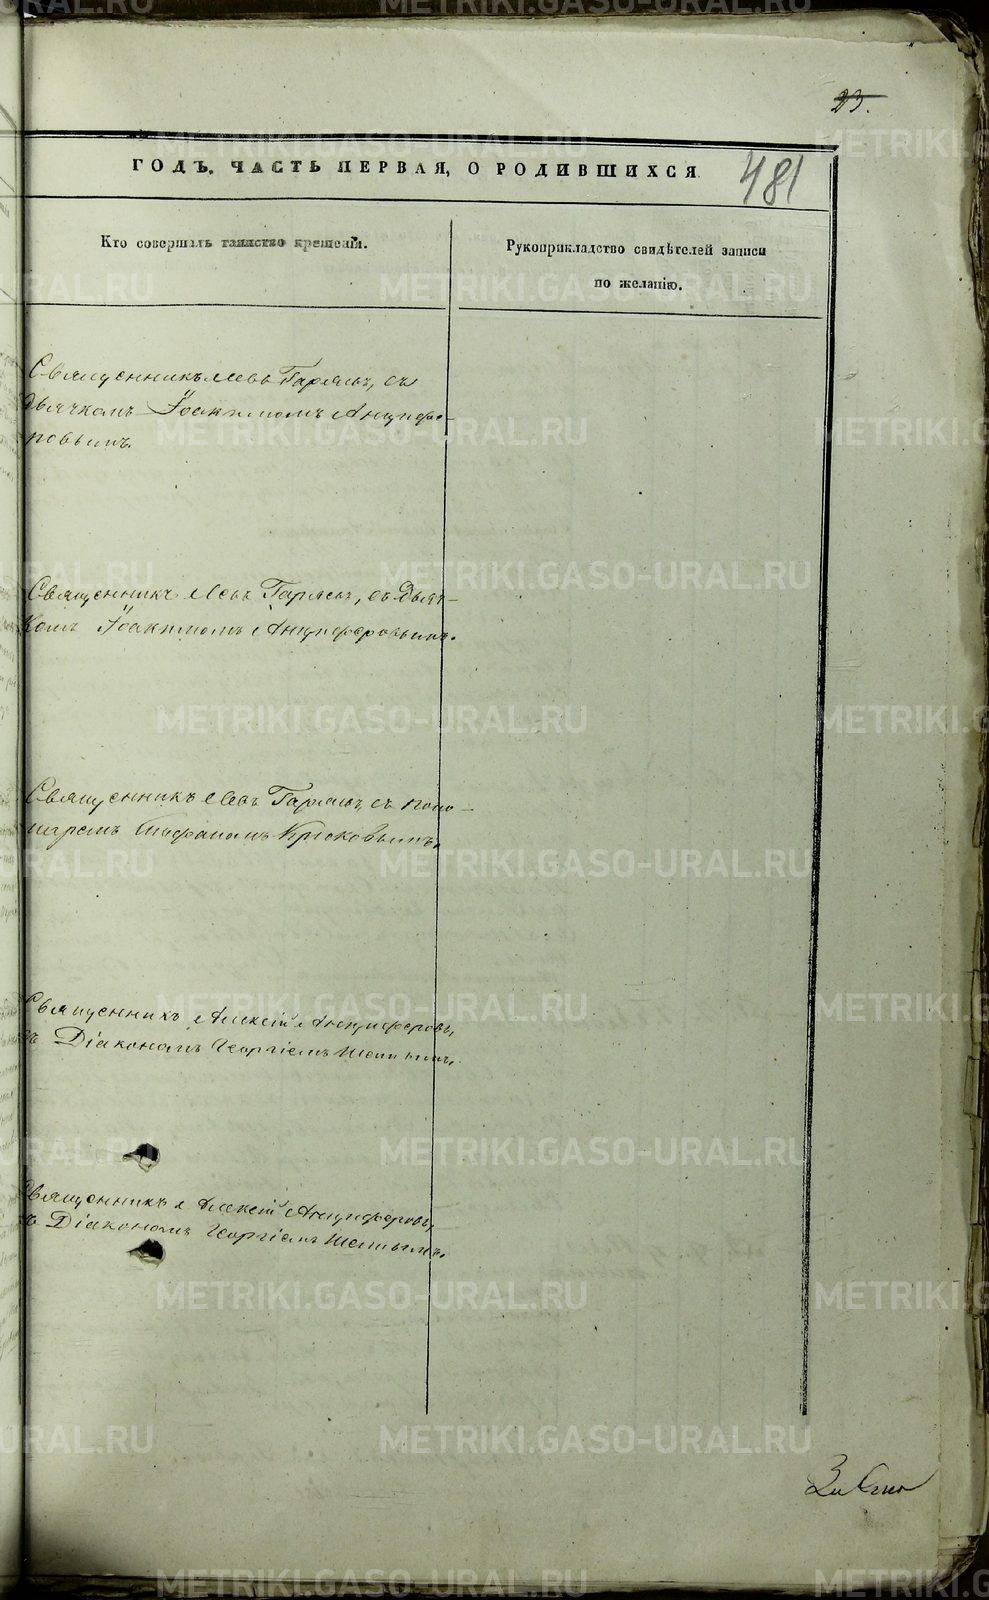 23.
ГОДЪ. ЧАСТЬ ПЕРВАЯ, О РОДИВШИХСЯ
481
Кто совершалъ таинство крещенія.
Рукоприкладство свидѣтелей записи
по желанію.
Священникъ Левъ Гаряевъ, съ
дьячкомъ Іоакимомъ Анциферо-
ровымъ.
Священникъ Левъ Гаряевъ, съ дьяч-
комъ Іоакимомъ Анциферовымъ.
Священникъ Левъ Гаряевъ, съ поно-
маремъ Стефаномъ Крюковымъ.
Священникъ Алексій Анциферовъ,
съ Діакономъ Георгіемъ
Священникъ Алексій Анциферовъ,
съ Діакономъ Георгіемъ
METRIKI.GASO-URAL.RU